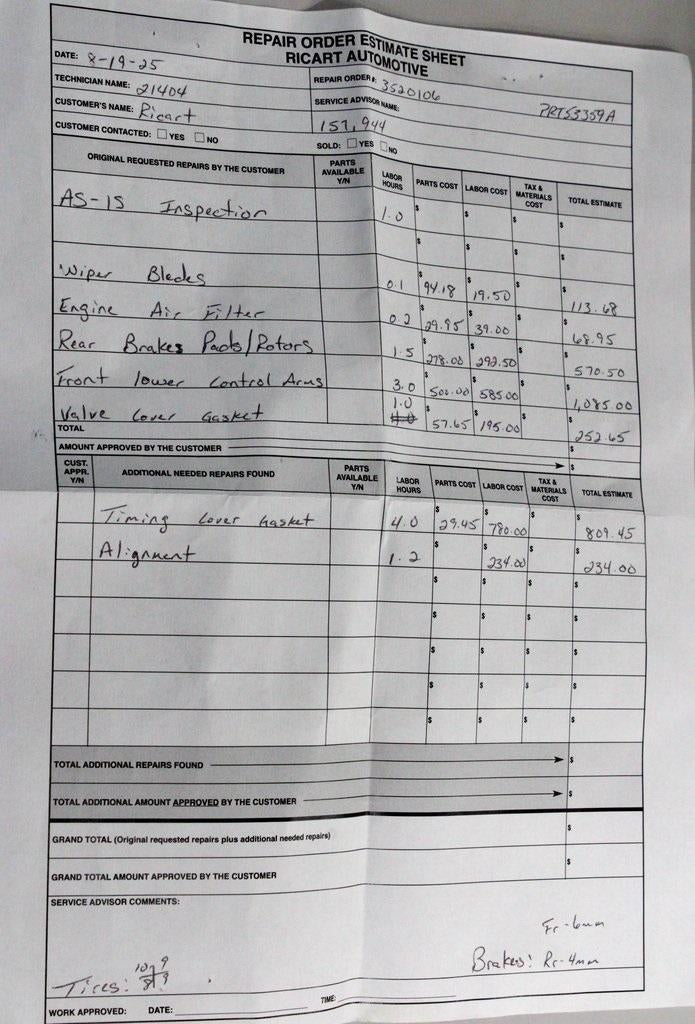 REPAIR ORDER ESTIMATE SHEET
RICART AUTOMOTIVE
DATE: 8-19-25
REPAIR ORDER#: 3520106
TECHNICIAN NAME: 21404
SERVICE ADVISOR NAME:
PRT53359A
CUSTOMER'S NAME: Ricart
157,944
CUSTOMER CONTACTED: YES NO
SOLD: YES NO
ORIGINAL REQUESTED REPAIRS BY THE CUSTOMER PARTS AVAILABLE Y/N LABOR HOURS PARTS COST LABOR COST TAX & MATERIALS COST TOTAL ESTIMATE
AS-IS Inspection 1.0 $ $ $ $
$ $ $ $
Wiper Blades 0.1 $ 94.18 $ 19.50 $ $ 113.68
Engine Air Filter 0.2 $ 29.95 $ 39.00 $ $ 68.95
Rear Brakes Pads/Rotors 1.5 $ 278.00 $ 292.50 $ $ 570.50
Front lower Control Arms 3.0 $ 500.00 $ 585.00 $ $ 1,085.00
Valve Cover Gasket 1.0 $ 57.65 $ 195.00 $ $ 252.65
TOTAL
AMOUNT APPROVED BY THE CUSTOMER $
CUST. APPR. Y/N ADDITIONAL NEEDED REPAIRS FOUND PARTS AVAILABLE Y/N LABOR HOURS PARTS COST LABOR COST TAX & MATERIALS COST TOTAL ESTIMATE
Timing Cover Gasket 4.0 $ 29.45 $ 780.00 $ $ 809.45
Alignment 1.2 $ $ 234.00 $ $ 234.00
$ $ $ $
$ $ $ $
$ $ $ $
$ $ $ $
$ $ $ $
TOTAL ADDITIONAL REPAIRS FOUND $
TOTAL ADDITIONAL AMOUNT APPROVED BY THE CUSTOMER $
GRAND TOTAL (Original requested repairs plus additional needed repairs) $
GRAND TOTAL AMOUNT APPROVED BY THE CUSTOMER $
SERVICE ADVISOR COMMENTS:
Fr-6mm
Brakes: Rr-4mm
Tires: 10 9
8 9
WORK APPROVED: DATE: TIME: